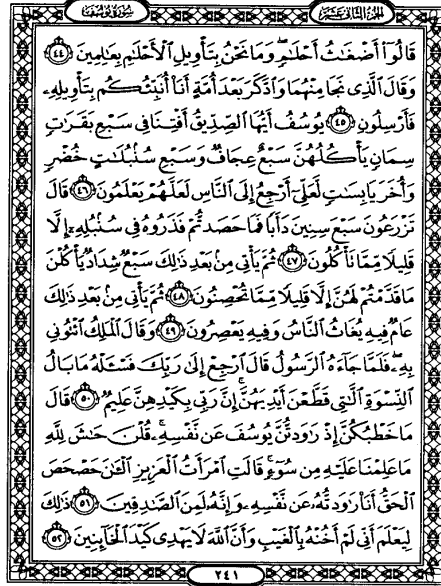 سورة يوسف
الجزء الثاني عشر
قَالُوٓا۟ أَضْغَٰثُ أَحْلَٰمٍ وَمَا نَحْنُ بِتَأْوِيلِ ٱلْأَحْلَٰمِ بِعَٰلِمِينَ ٤٤
وَقَالَ ٱلَّذِى نَجَا مِنْهُمَا وَٱدَّكَرَ بَعْدَ أُمَّةٍ أَنَا۠ أُنَبِّئُكُم بِتَأْوِيلِهِۦ
فَأَرْسِلُونِ ٤٥ يُوسُفُ أَيُّهَا ٱلصِّدِّيقُ أَفْتِنَا فِى سَبْعِ بَقَرَٰتٍ
سِمَانٍ يَأْكُلُهُنَّ سَبْعٌ عِجَافٌ وَسَبْعِ سُنۢبُلَٰتٍ خُضْرٍ
وَأُخَرَ يَابِسَٰتٍ لَّعَلِّىٓ أَرْجِعُ إِلَى ٱلنَّاسِ لَعَلَّهُمْ يَعْلَمُونَ ٤٦ قَالَ
تَزْرَعُونَ سَبْعَ سِنِينَ دَأَبًا فَمَا حَصَدتُّمْ فَذَرُوهُ فِى سُنۢبُلِهِۦٓ إِلَّا
قَلِيلًا مِّمَّا تَأْكُلُونَ ٤٧ ثُمَّ يَأْتِى مِنۢ بَعْدِ ذَٰلِكَ سَبْعٌ شِدَادٌ يَأْكُلْنَ
مَا قَدَّمْتُمْ لَهُنَّ إِلَّا قَلِيلًا مِّمَّا تُحْصِنُونَ ٤٨ ثُمَّ يَأْتِى مِنۢ بَعْدِ ذَٰلِكَ
عَامٌ فِيهِ يُغَاثُ ٱلنَّاسُ وَفِيهِ يَعْصِرُونَ ٤٩ وَقَالَ ٱلْمَلِكُ ٱئْتُونِى
بِهِۦ فَلَمَّا جَآءَهُ ٱلرَّسُولُ قَالَ ٱرْجِعْ إِلَىٰ رَبِّكَ فَسْـَٔلْهُ مَا بَالُ
ٱلنِّسْوَةِ ٱلَّٰتِى قَطَّعْنَ أَيْدِيَهُنَّ إِنَّ رَبِّى بِكَيْدِهِنَّ عَلِيمٌ ٥٠ قَالَ
مَا خَطْبُكُنَّ إِذْ رَٰوَدتُّنَّ يُوسُفَ عَن نَّفْسِهِۦ قُلْنَ حَٰشَ لِلَّهِ
مَا عَلِمْنَا عَلَيْهِ مِن سُوٓءٍ قَالَتِ ٱمْرَأَتُ ٱلْعَزِيزِ ٱلْـَٰٔنَ حَصْحَصَ
ٱلْحَقُّ أَنَا۠ رَٰوَدتُّهُۥ عَن نَّفْسِهِۦ وَإِنَّهُۥ لَمِنَ ٱلصَّٰدِقِينَ ٥١ ذَٰلِكَ
لِيَعْلَمَ أَنِّى لَمْ أَخُنْهُ بِٱلْغَيْبِ وَأَنَّ ٱللَّهَ لَا يَهْدِى كَيْدَ ٱلْخَآئِنِينَ ٥٢
٢٤١